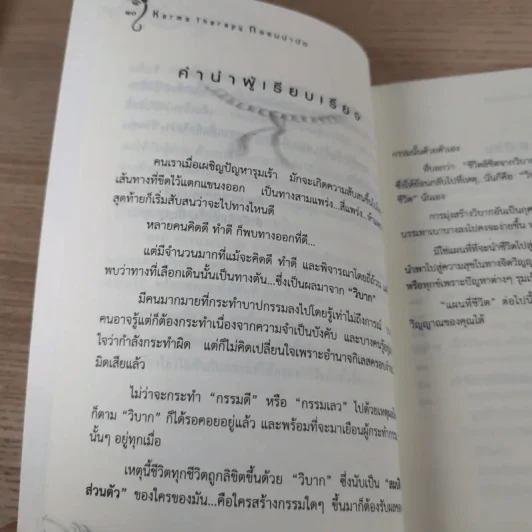 ๒๐ Karma therapy ถอดบาป
คำนำผู้เรียบเรียง
คนเราเมื่อเผชิญปัญหารุมเร้า มักจะเกิดความสับสน
เส้นทางที่ขีดไว้แตกแขนงออก เป็นทางสามแพร่ง...สี่แพร่ง...
สุดท้ายก็เริ่มสับสนว่าจะไปทางไหนดี
หลายคนคิดดี ทำดี ก็พบทางออกที่ดี...
แต่มีจำนวนมากที่แม้จะคิดดี ทำดี และพิจารณาโดยถี่ถ้วน
พบว่าทางที่เลือกเดินนั้นเป็นทางตัน...ซึ่งเป็นผลมาจาก “วิบาก”
มีคนมากมายที่กระทำบาปกรรมลงไปโดยรู้เท่าไม่ถึงการณ์
คนอาจรู้แต่ก็ต้องกระทำเนื่องจากความจำเป็นบังคับ และบางคน
ใจว่ากำลังกระทำผิด แต่ก็ไม่คิดเปลี่ยนใจเพราะอำนาจกิเลสครอบงำ
มิดเสียแล้ว
ไม่ว่าจะกระทำ “กรรมดี” หรือ “กรรมเลว” ไปด้วยเหตุผล
ก็ตาม “วิบาก” ก็ได้รอคอยอยู่แล้ว และพร้อมที่จะมาเยือนผู้กระทำ
นั้นๆ อยู่ทุกเมื่อ
เหตุนี้ชีวิตทุกชีวิตถูกลิขิตขึ้นด้วย “วิบาก” ซึ่งนับเป็น “สมบัติ
ส่วนตัว” ของใครของมัน...คือใครสร้างกรรมใดๆ ขึ้นมาก็ต้องรับ
กรรมนั้นด้วยตัวเอง
ที่บอกว่า “ชีวิตลิขิตจากวิบาก
ชีวิต” นั่นเอง
การมุ่งสร้างวิบากอันเป็นกุศล
บรรเทาเบาบางลงไปคงจะง่ายขึ้น
มิใช่แผนที่ที่จะนำชีวิตไปสู่
นำพาไปสู่ความสุขในทางจิตวิญญาณ
หรือทุกข์เพราะปัญหาต่างๆ รุม
“แผนที่ชีวิต” ต่อไปนี้
วิญญาณของคุณได้